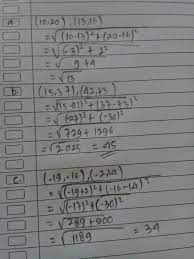 a. (10,20), (13,16)
= √(10-13)² + (20-16)²
= √(-3)² + 2²
= √9 + 4
= √13
b. (15,37), (42,73)
= √(15-42)² + (37-73)²
= √(-27)² + (-36)²
= √729 + 1296
= √2025 = 45
c. (-19,-16), (-2,14)
= √(-19+2)² + (-16-14)²
= √(-17)² + (-30)²
= √289 + 900
= √1189 = 34